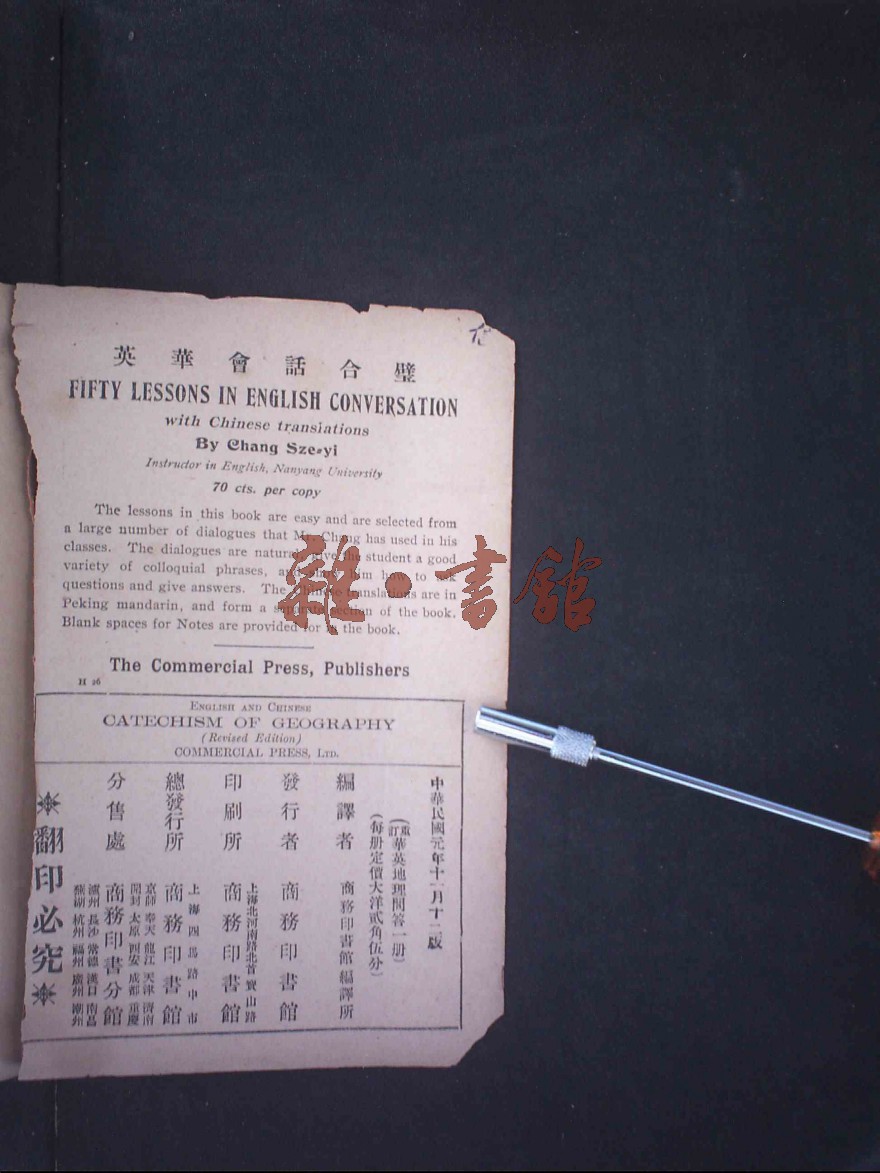 英華會話合璧
FIFTY LESSONS IN ENGLISH CONVERSATION
with Chinese translations
By Chang Sze-yi
Instructor in English, Nanyang University
70 cts. per copy
The lessons in this book are easy and are selected from
a large number of dialogues that Mr. Chang has used in his
classes. The dialogues are natural, give the student a good
variety of colloquial phrases, and show him how to ask
questions and give answers. The Chinese translations are in
Peking mandarin, and form a separate section of the book.
Blank spaces for Notes are provided for in the book.
雜·書館
The Commercial Press, Publishers
H 26
ENGLISH AND CHINESE
CATECHISM OF GEOGRAPHY
(Revised Edition)
COMMERCIAL PRESS, LTD.
中華民國元年十一月十二版
(重訂華英地理問答一册)
(每册定價大洋貳角伍分)
編譯者 商務印書館編譯所
發行者 商務印書館
印刷所 上海北河南路北首寶山路 商務印書館
總發行所 上海四馬路中市 商務印書館
分售處 商務印書分館
京師 奉天 龍江 天津 濟南
開封 太原 西安 成都 重慶
瀘州 長沙 常德 漢口 南昌
蕪湖 杭州 福州 廣州 潮州
翻印必究